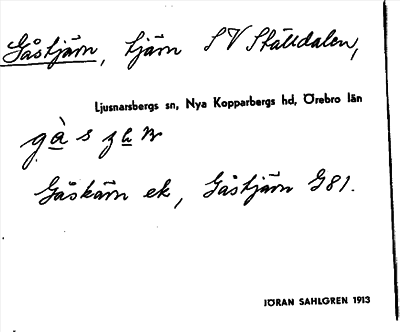 Gåstjärn, tjärn S V Ställdalen,
Ljusnarsbergs sn, Nya Kopparbergs hd, Örebro län
Gåskärn ek, Gåstjärn G81.
JÖRAN SAHLGREN 1913